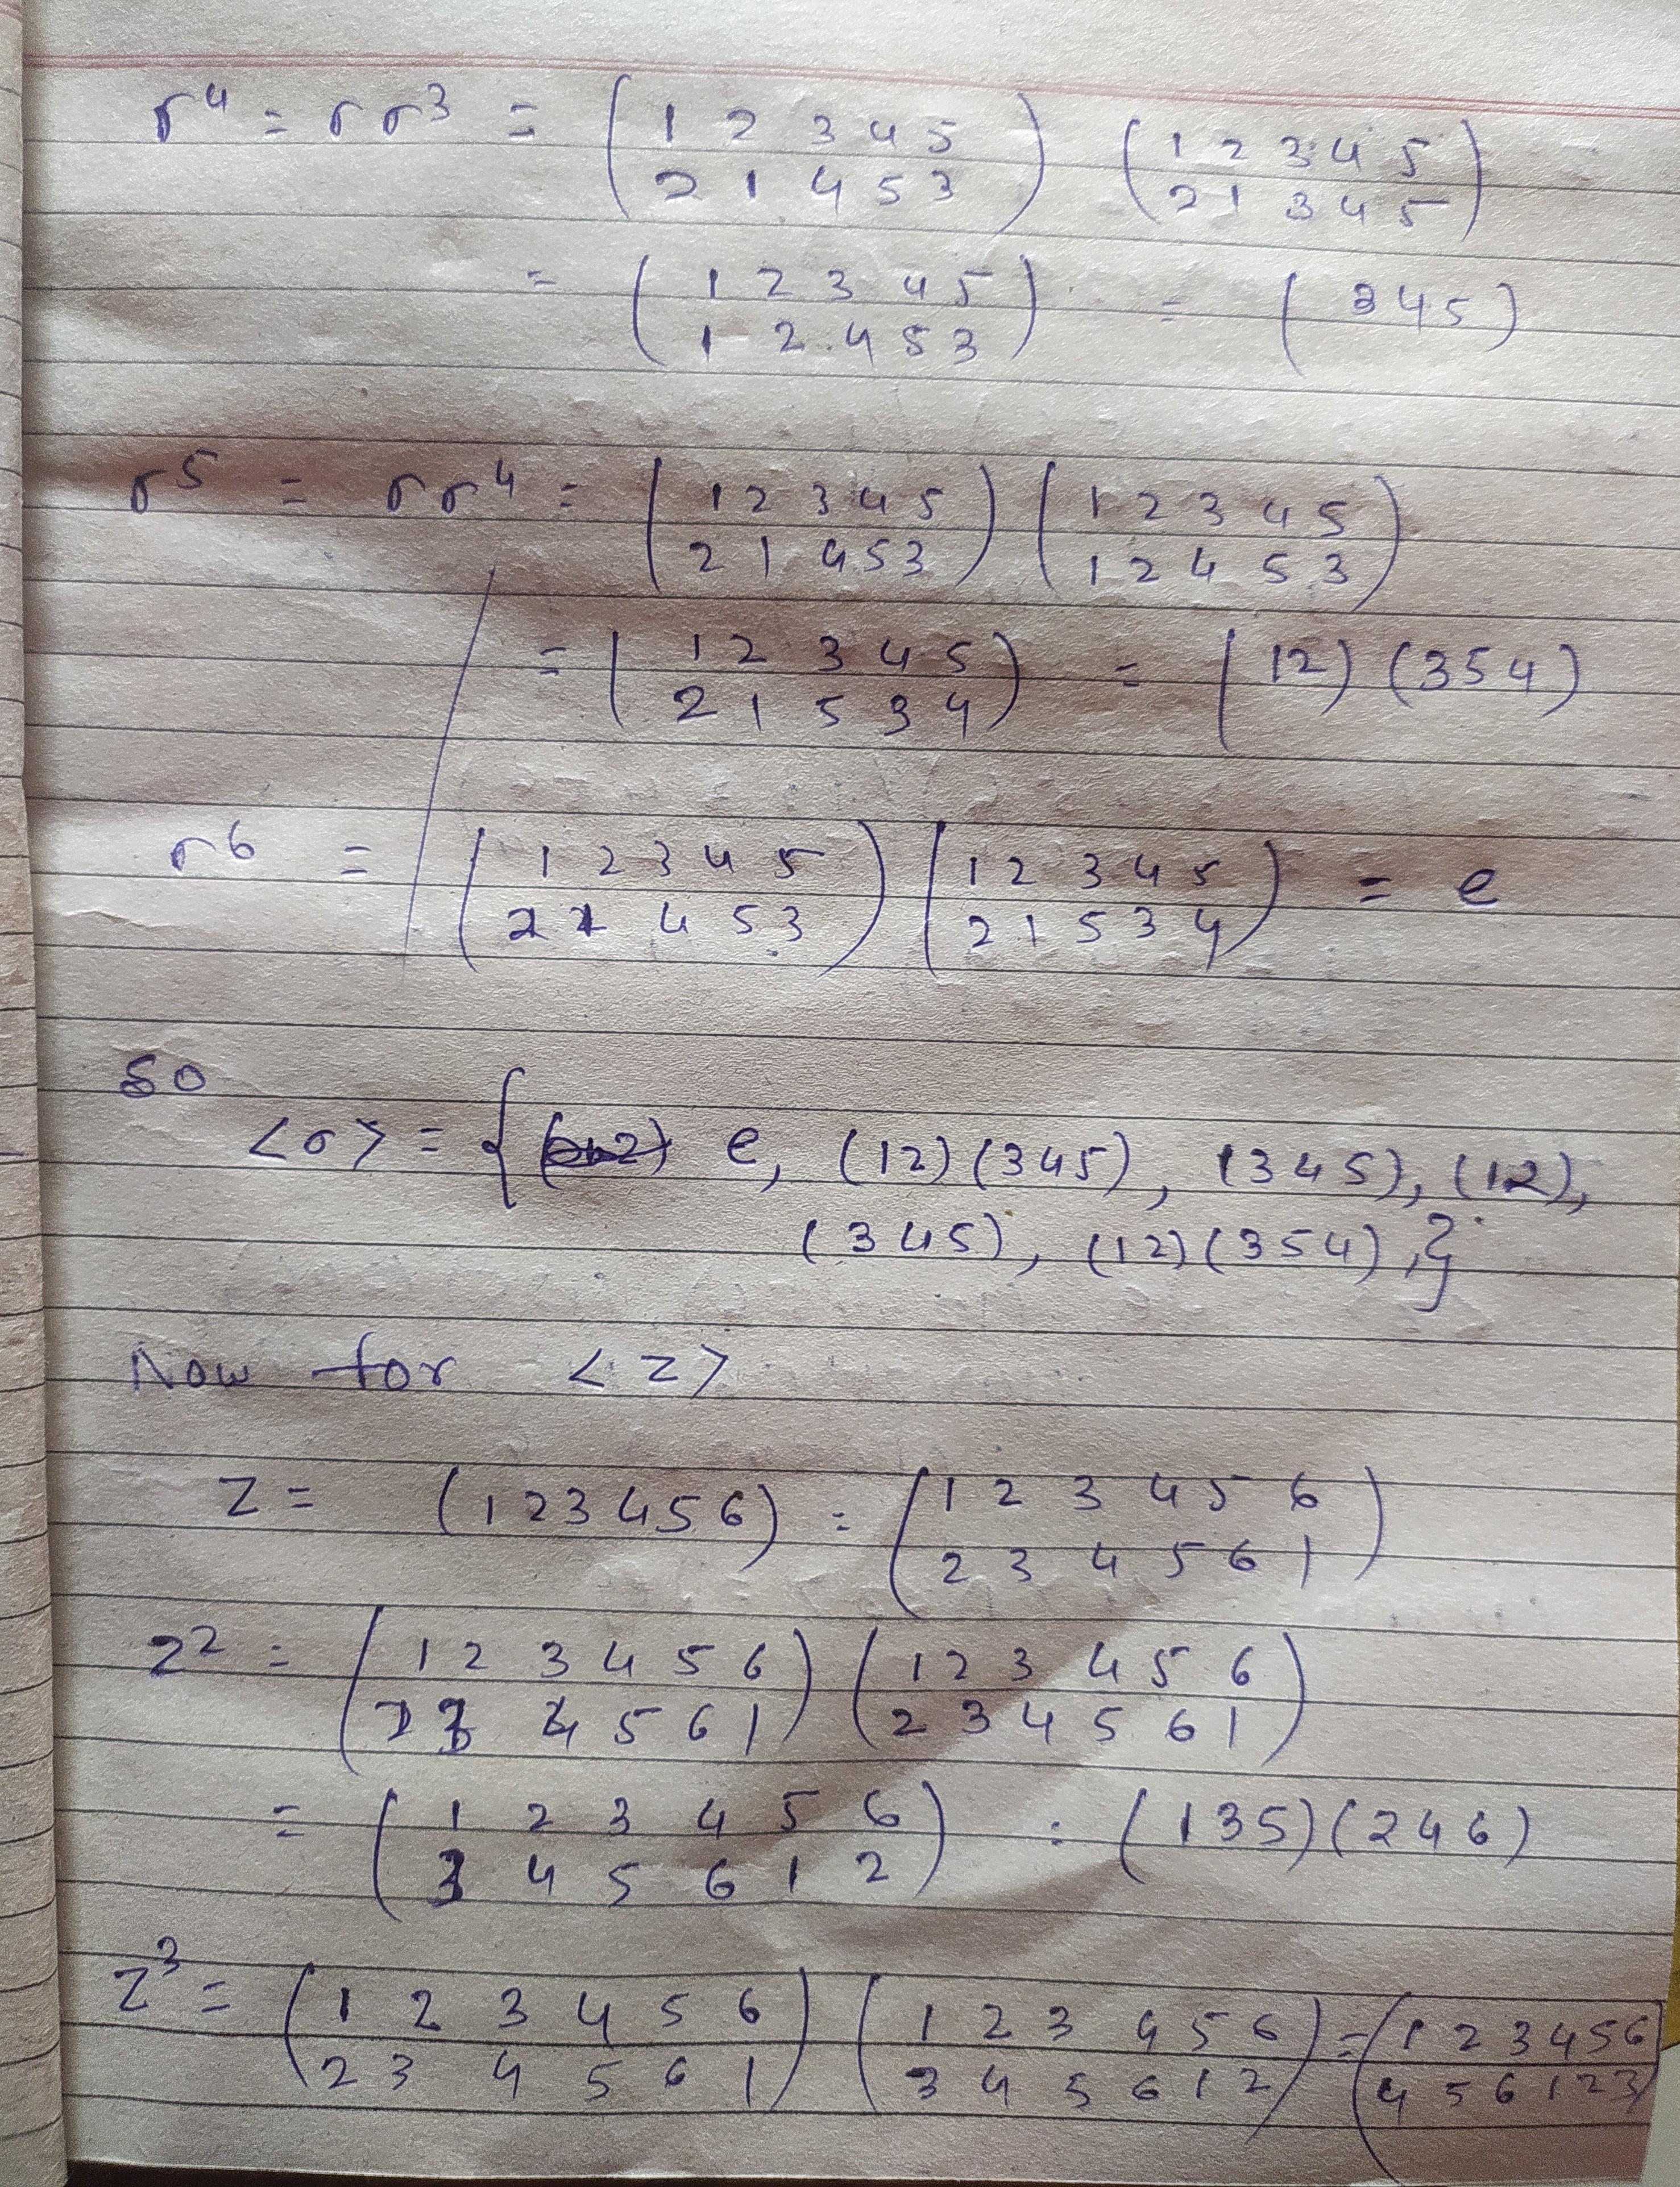 σ⁴ = σσ³ = (1 2 3 4 5 / 2 1 4 5 3) (1 2 3 4 5 / 2 1 3 4 5)
= (1 2 3 4 5 / 1 2 4 5 3) = (3 4 5)
σ⁵ = σσ⁴ = (1 2 3 4 5 / 2 1 4 5 3) (1 2 3 4 5 / 1 2 4 5 3)
= (1 2 3 4 5 / 2 1 5 3 4) = (12) (354)
σ⁶ = (1 2 3 4 5 / 2 1 4 5 3) (1 2 3 4 5 / 2 1 5 3 4) = e
so
<σ> = { e, (12)(345), (345), (12),
(345), (12)(354), }
Now for <Z>
Z = (1 2 3 4 5 6) = (1 2 3 4 5 6 / 2 3 4 5 6 1)
Z² = (1 2 3 4 5 6 / 2 3 4 5 6 1) (1 2 3 4 5 6 / 2 3 4 5 6 1)
= (1 2 3 4 5 6 / 3 4 5 6 1 2) = (135)(246)
Z³ = (1 2 3 4 5 6 / 2 3 4 5 6 1) (1 2 3 4 5 6 / 3 4 5 6 1 2) = (1 2 3 4 5 6 / 4 5 6 1 2 3)